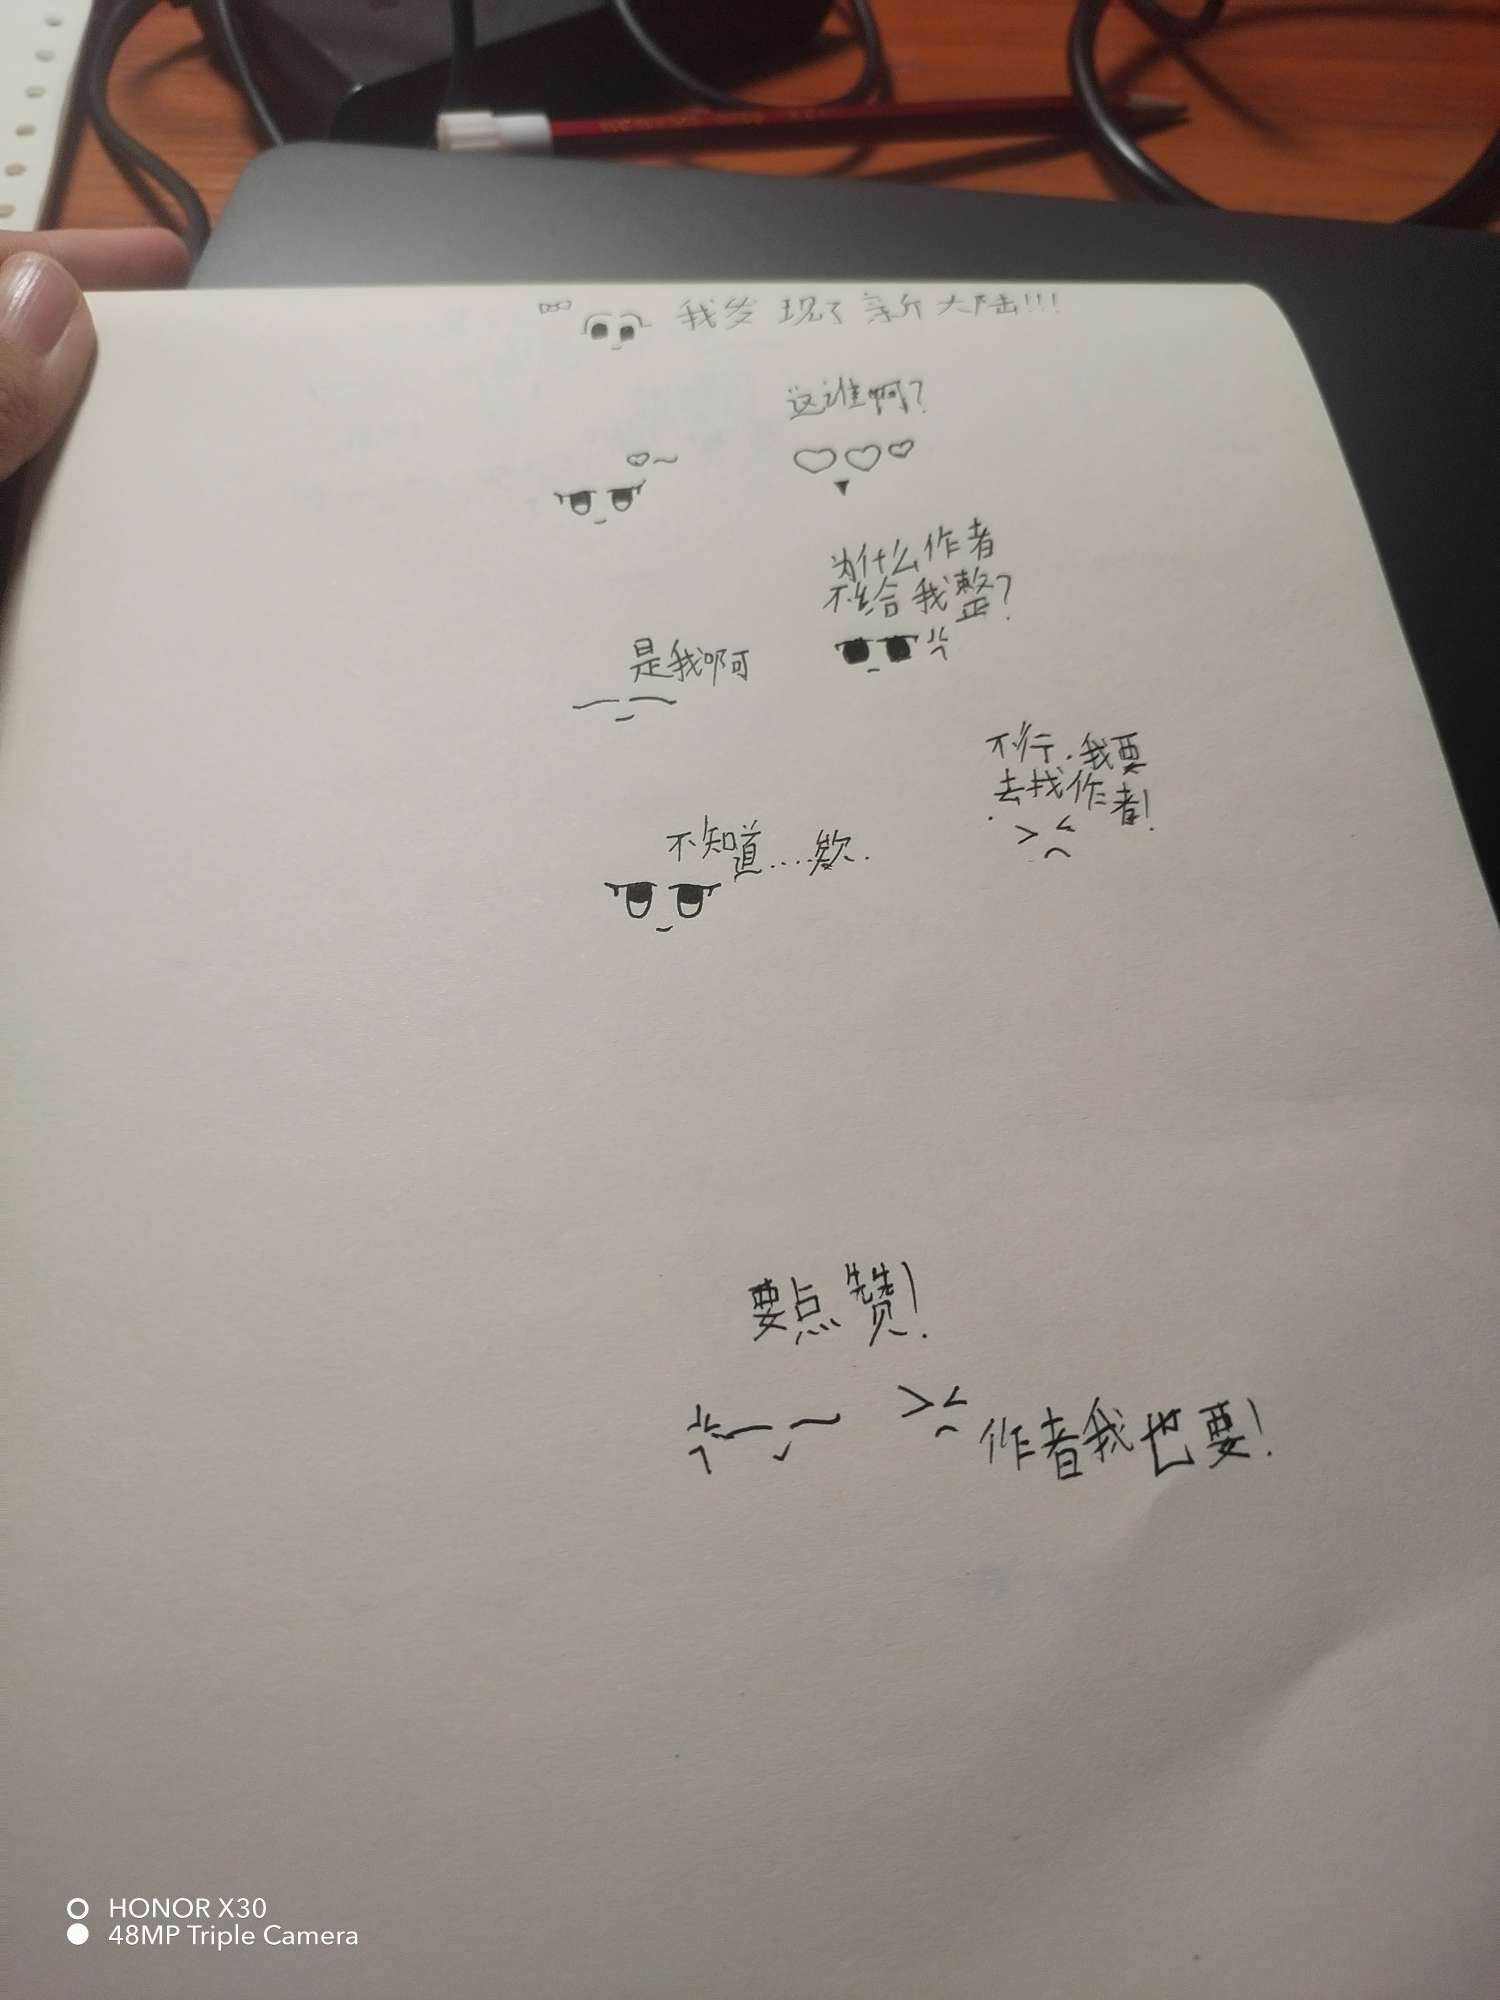 我发现了新大陆!!!
这谁啊?
为什么作者
不给我整?
是我啊
不行.我要
去找作者!
不知道....欸.
要点赞!
作者我也要!
HONOR X30
48MP Triple Camera